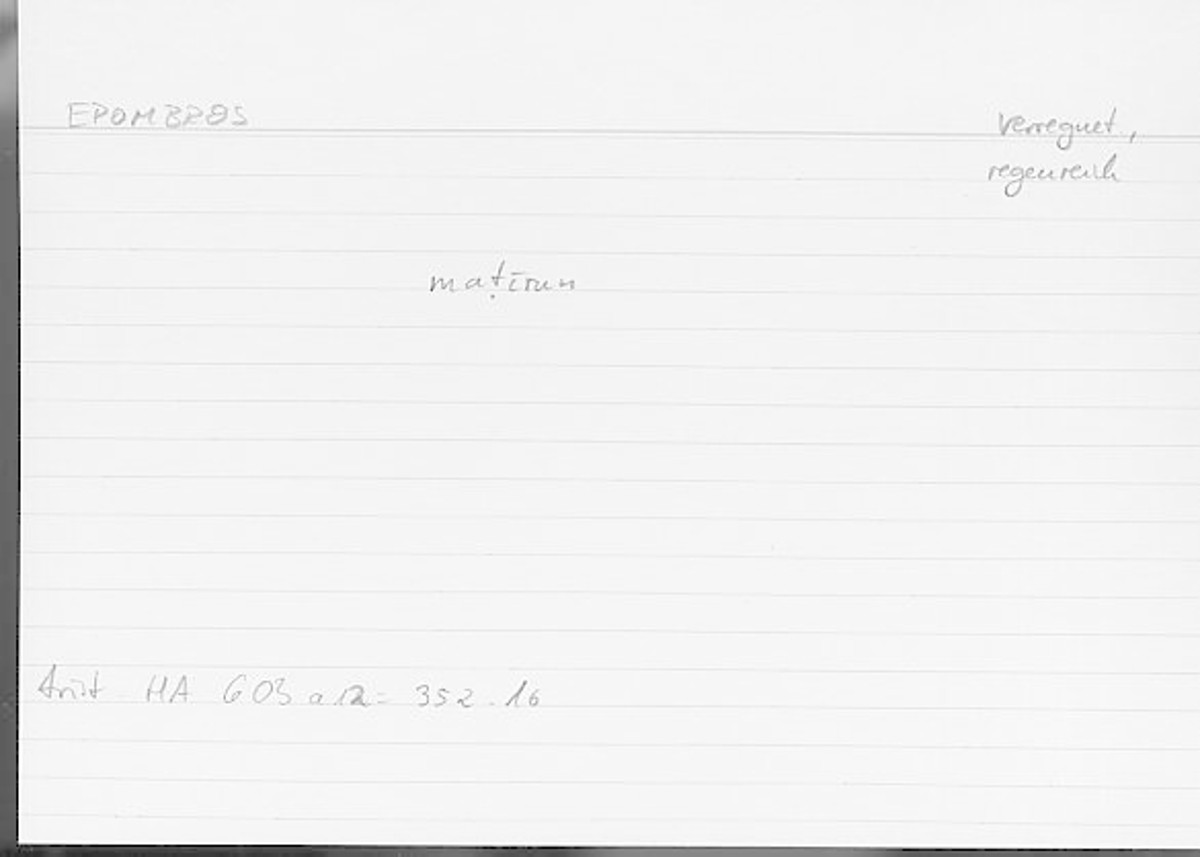 EPOMBROS
verregnet,
regenreich
maṭīrun
Arist HA 603 a 12 = 352.16